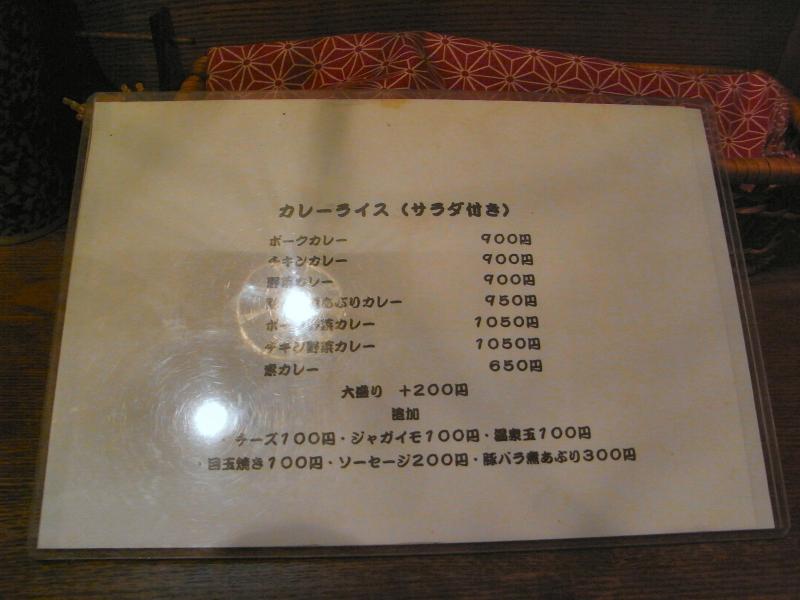 カレーライス（サラダ付き）
ポークカレー 900円
チキンカレー 900円
野菜カレー 900円
あぶりカレー 950円
ポーク野菜カレー 1050円
チキン野菜カレー 1050円
素カレー 650円
大盛り ＋200円
追加
・チーズ100円・ジャガイモ100円・温泉玉100円
・目玉焼き100円・ソーセージ200円・豚バラ煮あぶり300円